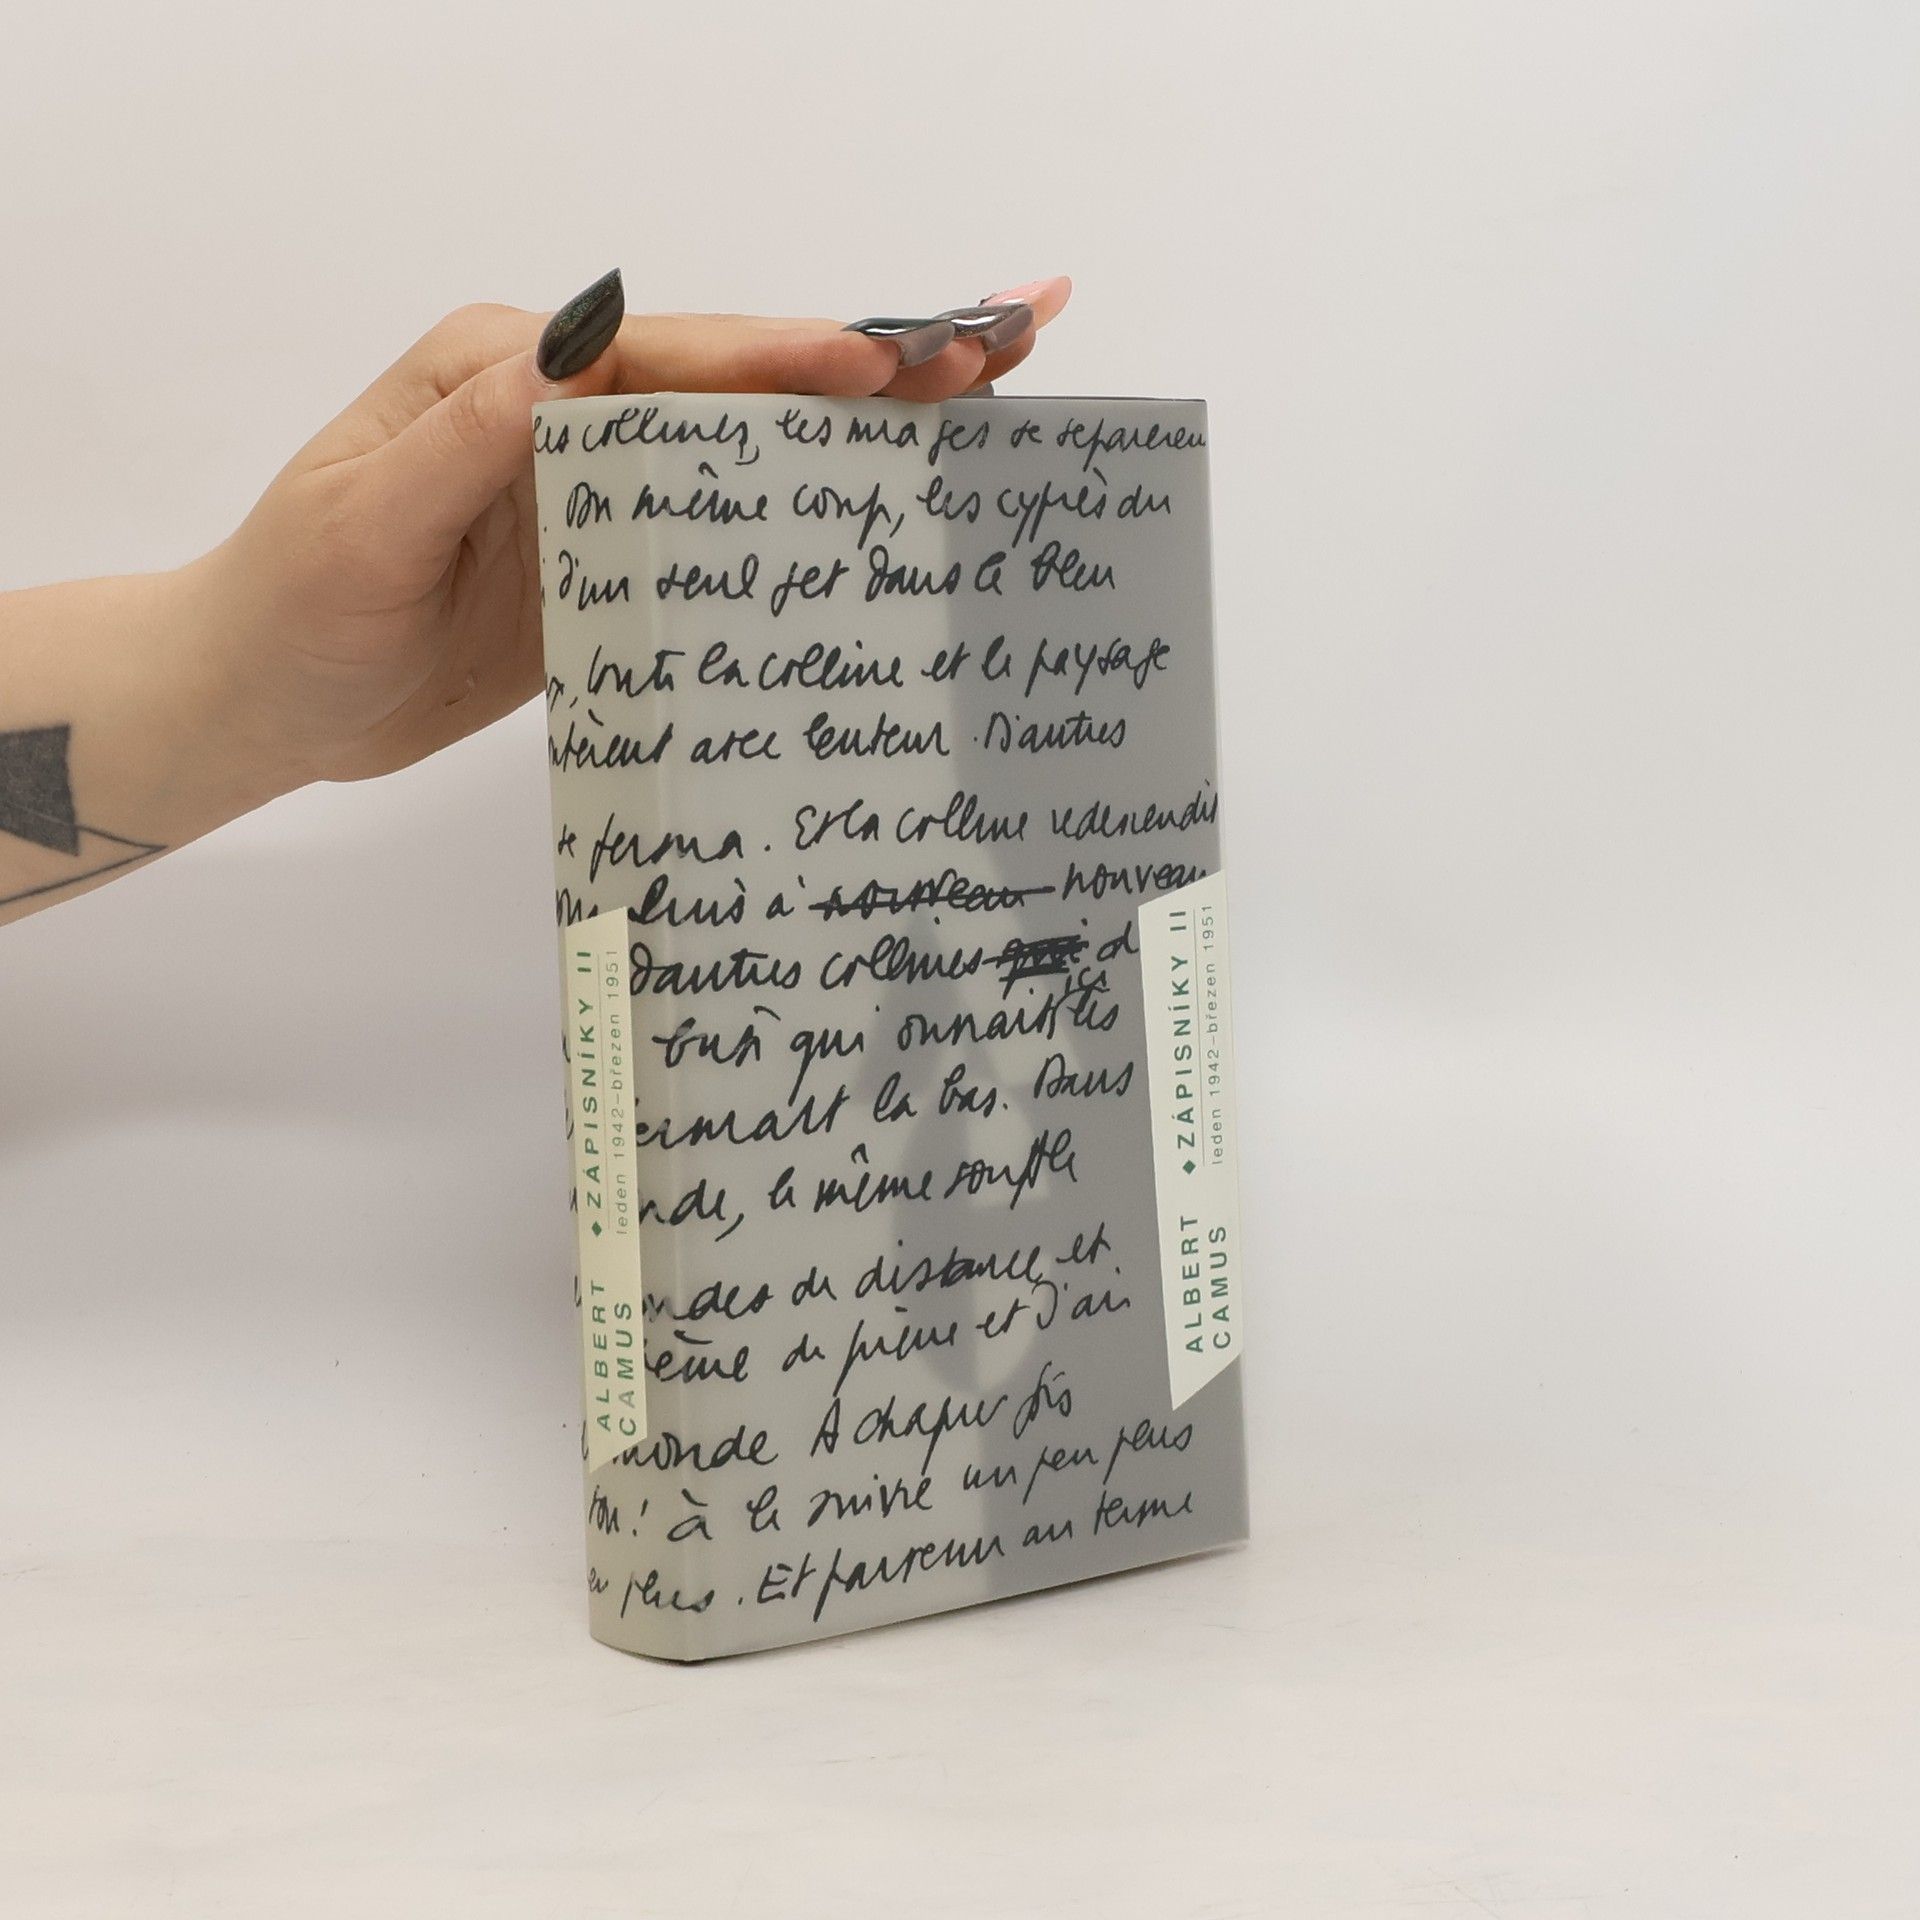 les collines, les nuages se séparèren
. Du même coup, les cyprès du
d'un seul jet dans le bleu
, toute la colline et le paysage
ntèrent avec lenteur. D'autres
se ferma. Et la colline redescendit
puis à nouveau nouveau
d'autres collines qui d
ici les
qui
là bas. Dans
nde, le même souffle
ondes de distance et
de pierre et d'air
monde A chaque fois
! à le suivre un peu plus
en plus. Et parvenu au terme
ALBERT
CAMUS
◆ ZÁPISNÍKY II
leden 1942–březen 1951
ALBERT
CAMUS
◆ ZÁPISNÍKY II
leden 1942–březen 1951